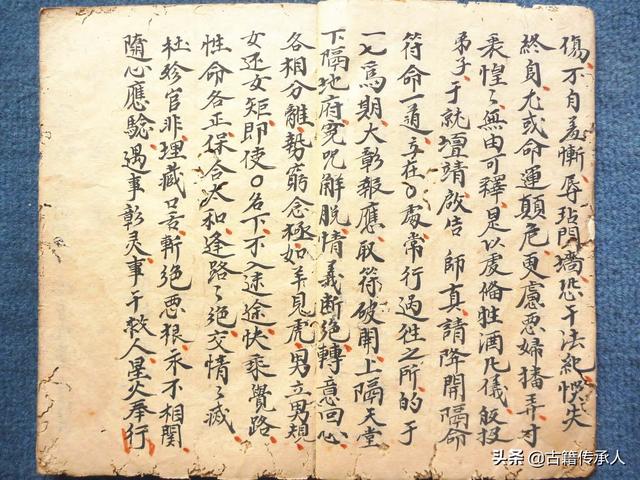 傷不自羞慚辱玷門墻恐干法紀悞失
終身尤或命運顛危更慮悪婦播弄寸
衷惶〻無由可釋是以虔俻牲酒凡儀皈投
弟子于就壇靖啟告 師真請降開隔命
符命一道立在○處常行過往之所的于
一七為期大彰報應取符破開上隔天堂
下隔地府寃咒解脱情義断绝轉意回心
各相分離勢窮念極如羊見虎男立男規
女还女矩即使○名下不入迷途快乘覺路
性命各正保合太和逢路〻絕交情〻滅
杜珍官非埋藏口舌斬絕悪狠永不相関
隨心應驗遇事彰灵事干救人星火奉行
头条@古籍传承人